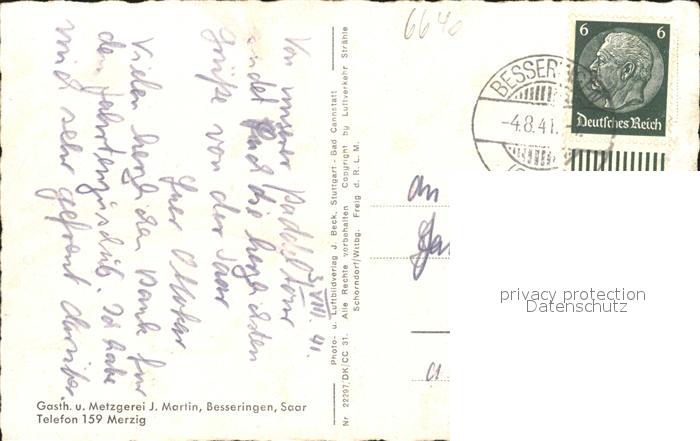 6640
6 6
Deutsches Reich
BESSERINGEN
-4.8.41.-
3. VIII. 41.
Von unserer Paddeltour
sendet Euch die herzlichsten
Grüße von der Saar
Euer Ottokar
Vielen herzlichen Dank für
den Fahrtengruß. Ich habe
mich sehr gefreut darüber.
Photo- u. Luftbildverlag J. Beck, Stuttgart - Bad Cannstatt
Nr 22297/DK/CC 31. Alle Rechte vorbehalten Copyright by Luftverkehr Strähle
Schorndorf/Wttbg. Freig d. R.L.M.
An
privacy protection
Datenschutz
Gasth. u. Metzgerei J. Martin, Besseringen, Saar
Telefon 159 Merzig